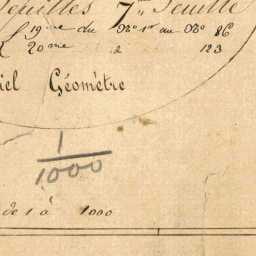 Feuilles 7me Feuille
19me du No 1er au No 86
20me 2 123
iel Géomètre
1
1000
de 1 à 1000